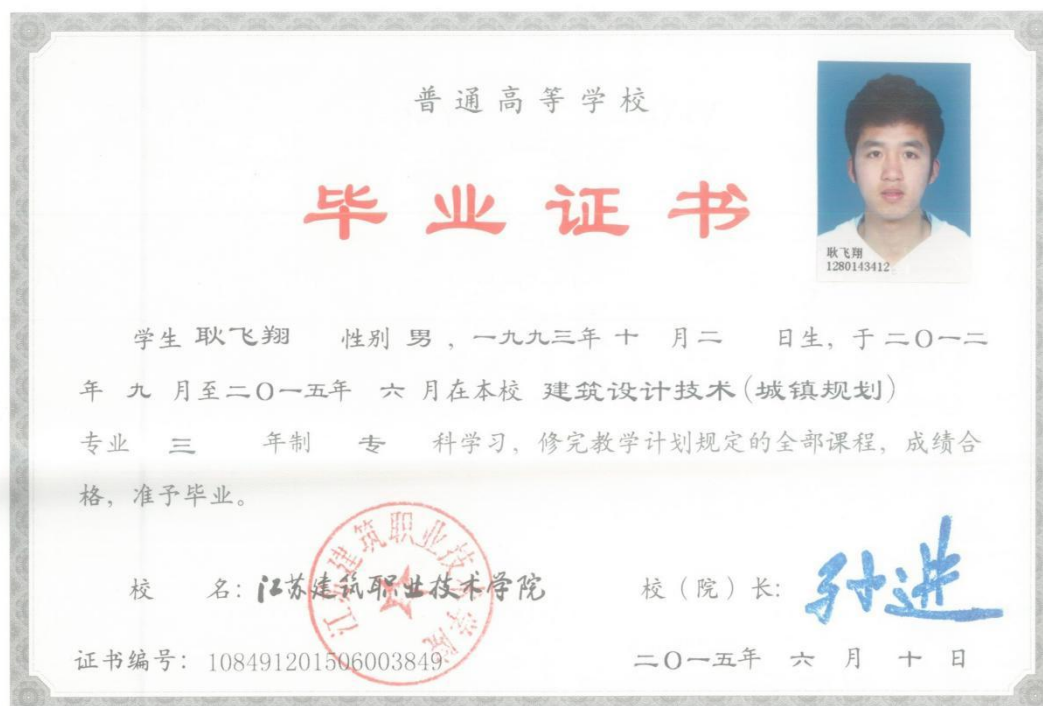 普通高等学校
毕业证书
耿飞翔
1280143412
学生 耿飞翔 性别 男 , 一九九三年 十 月 二 日生, 于 二〇一二
年 九 月至二〇一五年 六 月在本校 建筑设计技术(城镇规划)
专业 三 年制 专 科学习, 修完教学计划规定的全部课程, 成绩合
格, 准予毕业。
江苏建筑职业技术学院
校 名: 江苏建筑职业技术学院 校（院）长: 孙进
证书编号: 108491201506003849 二〇一五年 六 月 十 日